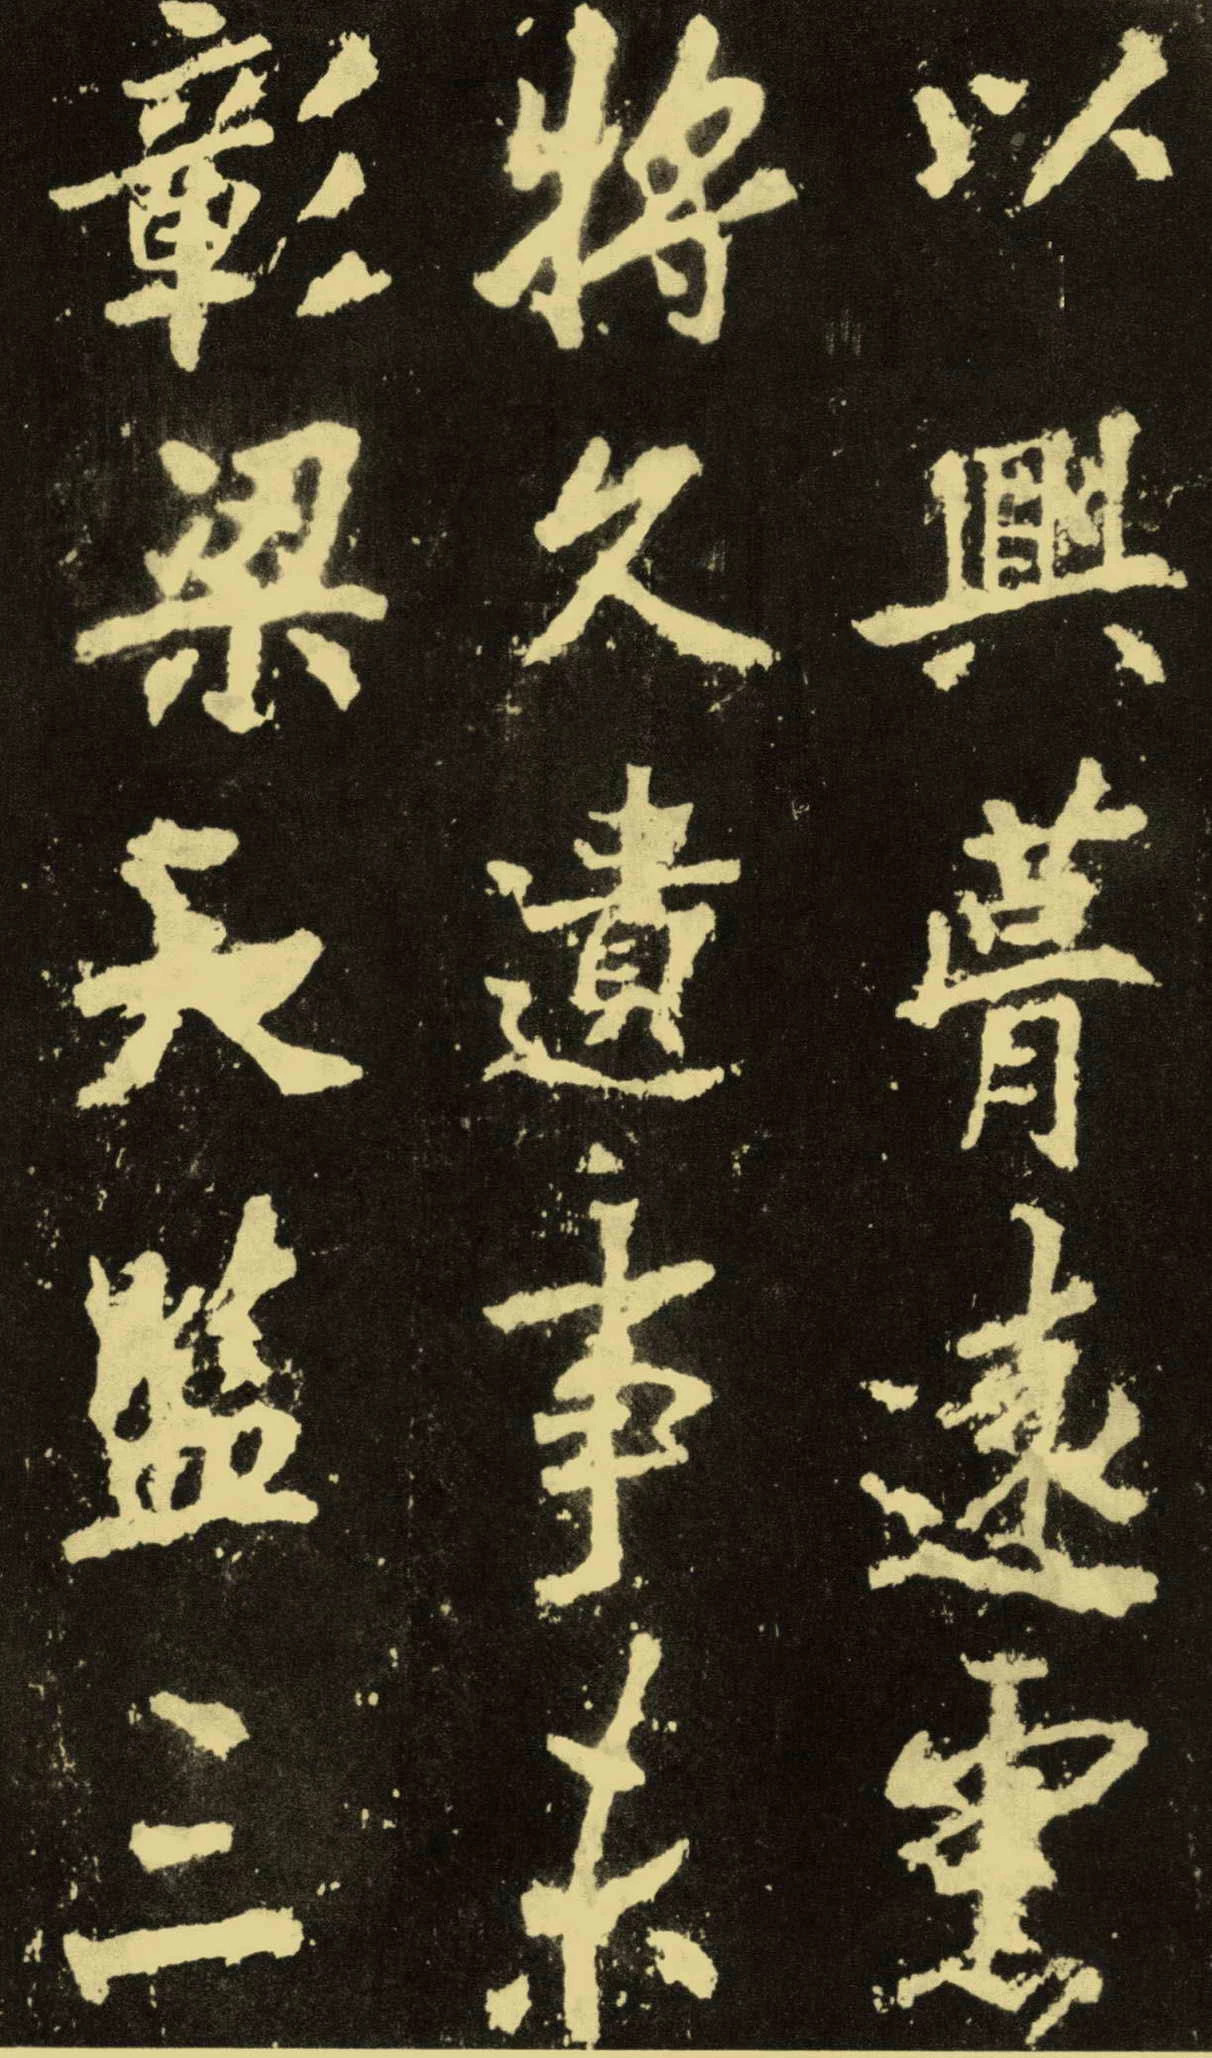 以興遠
將久遺事未
彰梁天監三